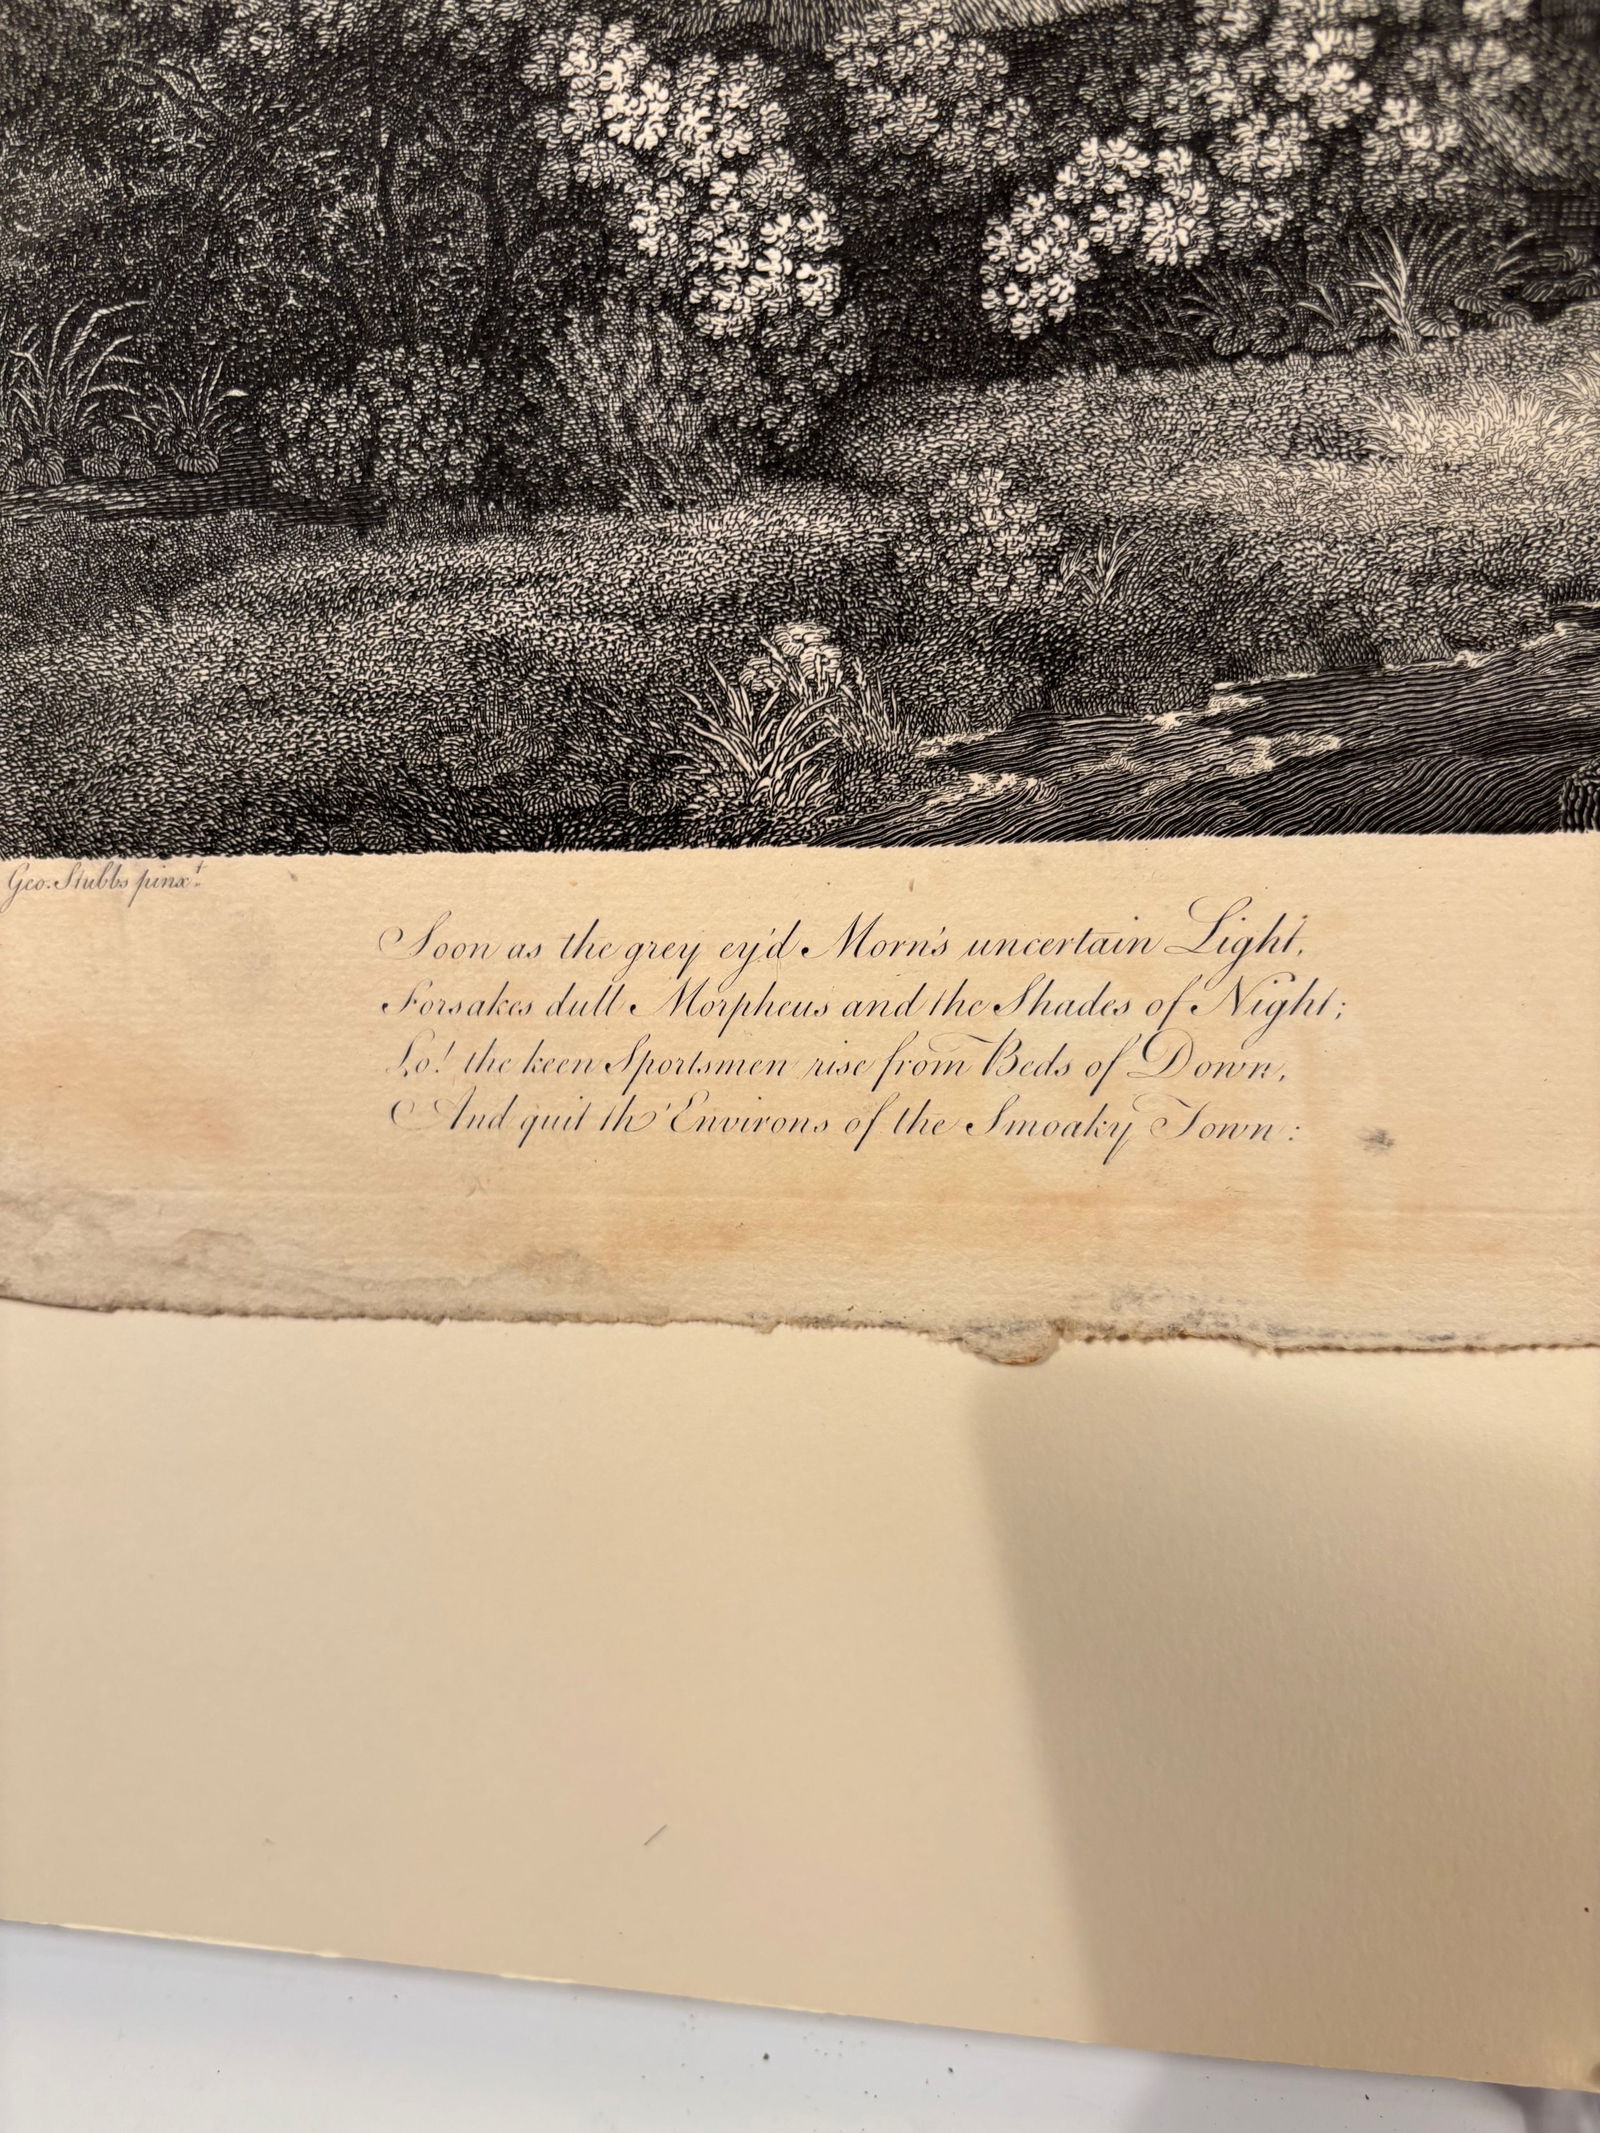 Geo. Stubbs pinxt.
Soon as the grey ey'd Morn's uncertain Light,
Forsakes dull Morpheus and the Shades of Night;
Lo! the keen Sportsmen rise from Beds of Down,
And quit th' Environs of the Smoaky Town: